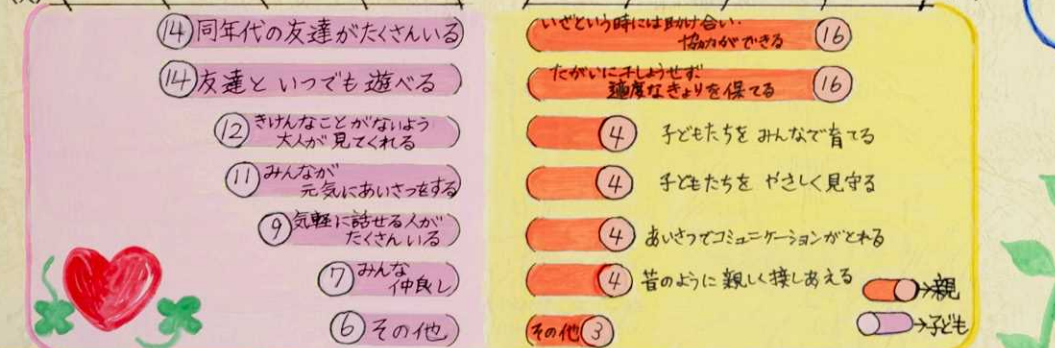 ⑭同年代の友達がたくさんいる
⑭友達といつでも遊べる
⑫きけんなことがないよう
大人が見てくれる
⑪みんなが
元気にあいさつをする
⑨気軽に話せる人が
たくさんいる
⑦みんな
仲良し
⑥その他
いざという時には助け合い・
協力ができる⑯
たがいに干しょうせず
適度なきょりを保てる⑯
④子どもたちをみんなで育てる
④子どもたちをやさしく見守る
④あいさつでコミュニケーションがとれる
④昔のように親しく接しあえる
その他③
→親
→子ども